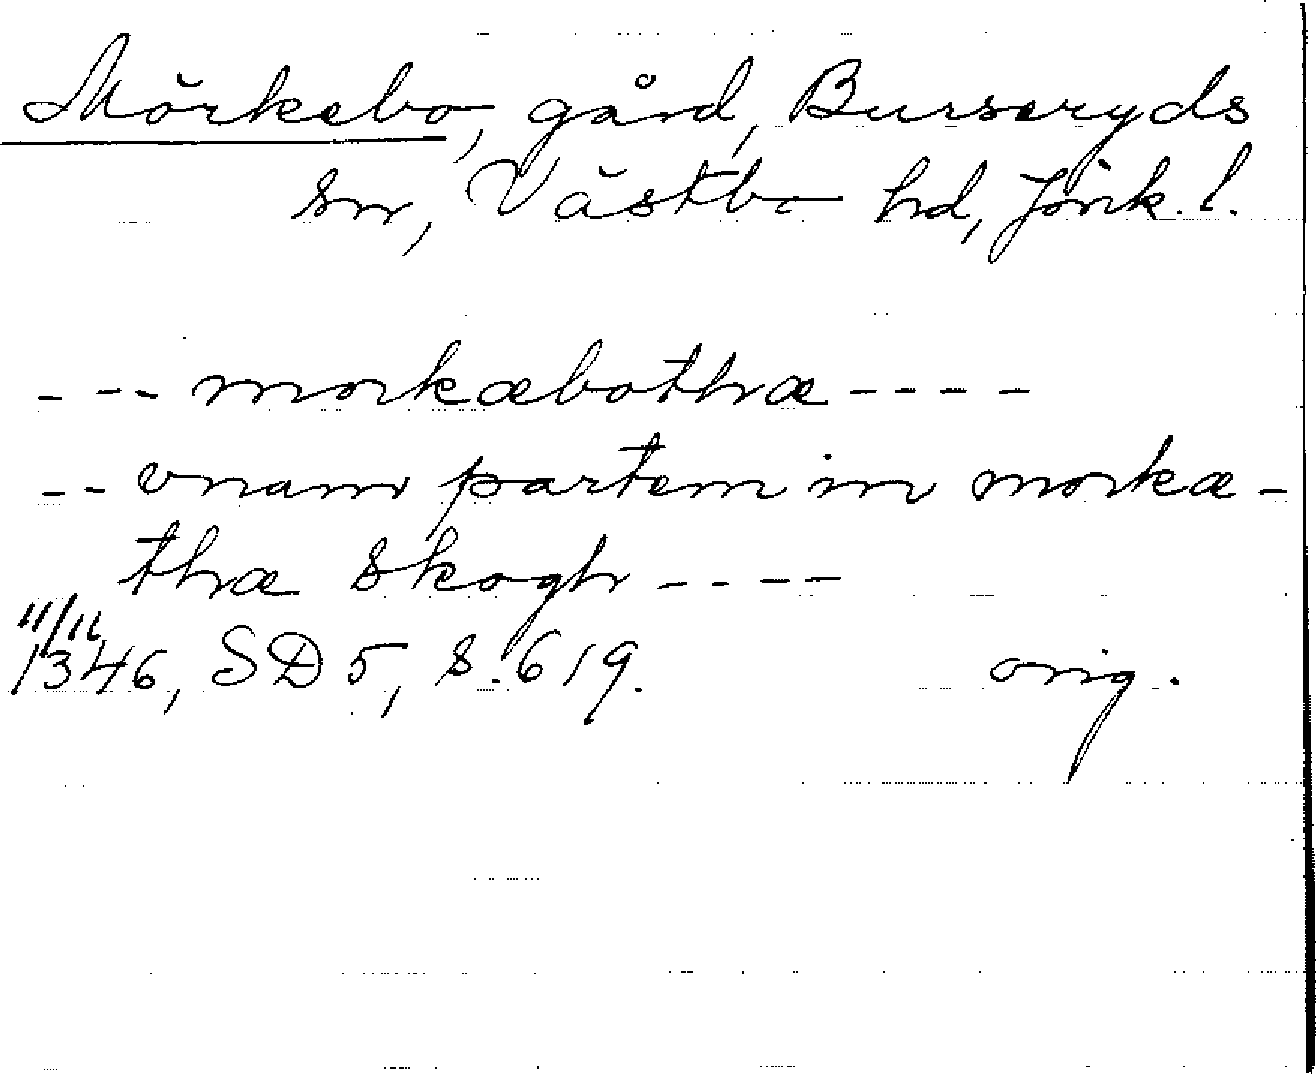 Mörkebo, gård, Burseryds
sn, Västbo hd, Jönk. l.
--- morkæbothræ ----
-- vnam partem in morkæ-
thræ skogh ----
11/11
1346, SD 5, s. 619. orig.